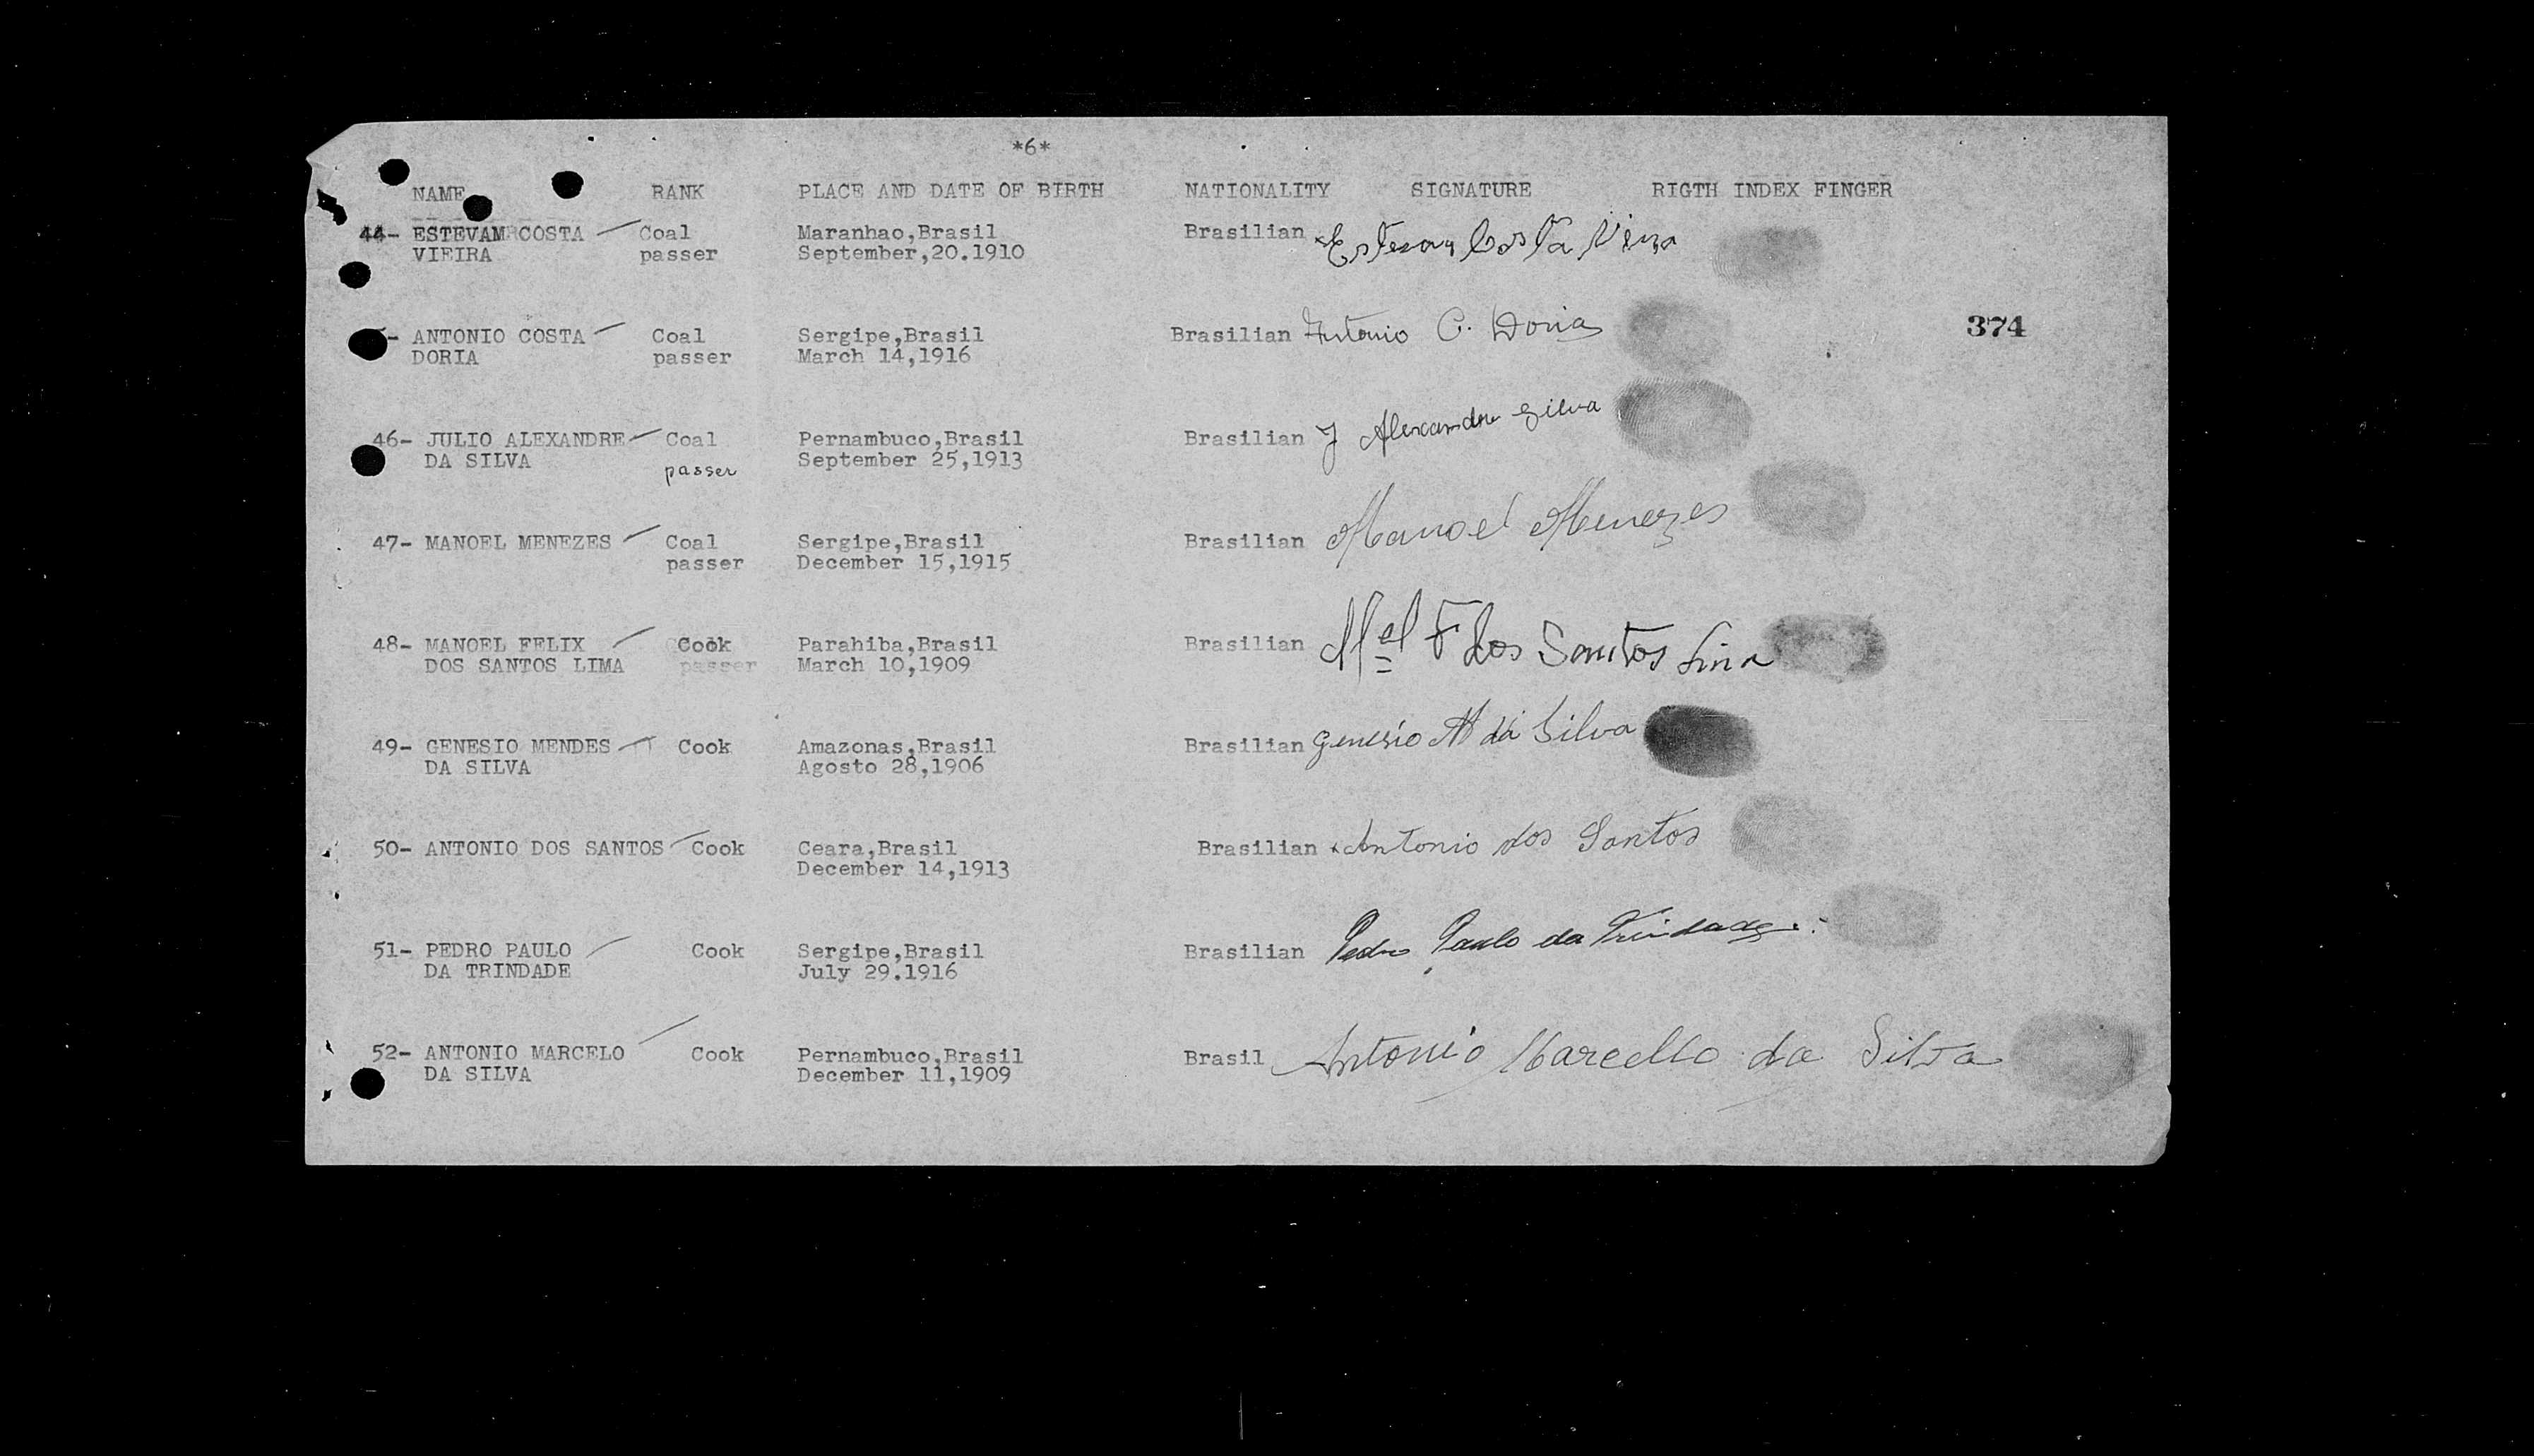 *6*
NAME RANK PLACE AND DATE OF BIRTH NATIONALITY SIGNATURE RIGTH INDEX FINGER
44- ESTEVAM COSTA Coal Maranhao,Brasil Brasilian Estevam Costa Vieira
VIEIRA passer September,20.1910
- ANTONIO COSTA Coal Sergipe,Brasil Brasilian Antonio C. Doria 374
DORIA passer March 14,1916
46- JULIO ALEXANDRE Coal Pernambuco,Brasil Brasilian J Alexandre Silva
DA SILVA passer September 25,1913
47- MANOEL MENEZES Coal Sergipe,Brasil Brasilian Manoel Menezes
passer December 15,1915
48- MANOEL FELIX Cook Parahiba,Brasil Brasilian Mel F dos Santos Lima
DOS SANTOS LIMA passer March 10,1909
49- GENESIO MENDES Cook Amazonas,Brasil Brasilian Genesio M da Silva
DA SILVA Agosto 28,1906
50- ANTONIO DOS SANTOS Cook Ceara,Brasil Brasilian Antonio dos Santos
December 14,1913
51- PEDRO PAULO Cook Sergipe,Brasil Brasilian Pedro Paulo da Trindade.
DA TRINDADE July 29.1916
52- ANTONIO MARCELO Cook Pernambuco,Brasil Brasil Antonio Marcello da Silva
DA SILVA December 11,1909